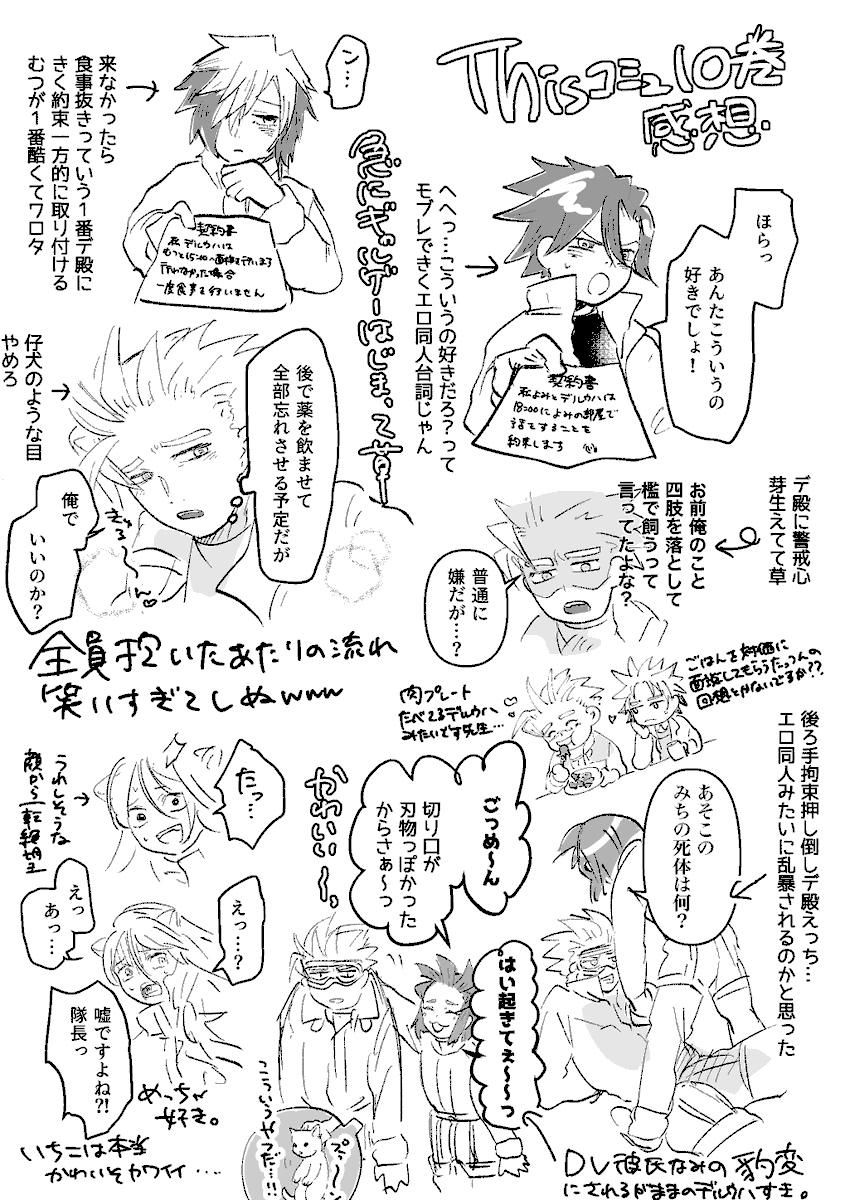 Thisコミュ10巻
感想.
ほらっ
あんたこういうの
好きでしょ！
へへっ…こういうの好きだろ？って
モブレできくエロ同人台詞じゃん
契約書
私よみとデルウハは
18:00によみの部屋で
話をすることを
約束します
ン…
来なかったら
食事抜きっていう１番デ殿に
きく約束一方的に取り付ける
むつが１番酷くてワロタ
契約書
私デルウハは
むつと15:00へ面接を行います
行わなかった場合
一度食事を行いません
急にギャルゲーはじまって草
後で薬を飲ませて
全部忘れさせる予定だが
俺で
いいのか？
きゅるん
仔犬のような目
やめろ
デ殿に警戒心
芽生えてて草
お前俺のこと
四肢を落として
檻で飼うって
言ってたよな？
普通に
嫌だが…？
全員抱いたあたりの流れ
笑いすぎてしぬwww
ごはんを対価に
面談してもらうたつんの
回想とかないですか??
肉プレート
たべてるデルウハ
みたいです先生…
後ろ手拘束押し倒しデ殿えっち…
エロ同人みたいに乱暴されるのかと思った
あそこの
みちの死体は何？
ごつめ〜ん
切り口が
刃物っぽかった
からさぁ〜っ
かわいい〜〜
はい起きてぇ〜〜っ
DV彼氏なみの豹変
にされるがままのデルウハすき。
こういうやつだ…!!
たっ…
うれしそうな
顔から一転絶望
えっ…？
えっ
あっ…
嘘ですよね⁈
隊長っ
めっちゃ
好き。
いちこは本当
かわいそカワイイ….